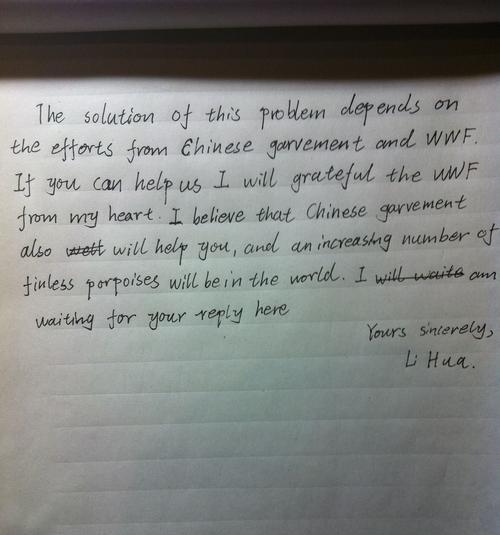 The solution of this problem depends on
the efforts from Chinese garvement and WWF.
If you can help us I will grateful the WWF
from my heart. I believe that Chinese garvement
also will help you, and an increasing number of
finless porpoises will be in the world. I will waite am
waiting for your reply here
Yours sincerely,
Li Hua.